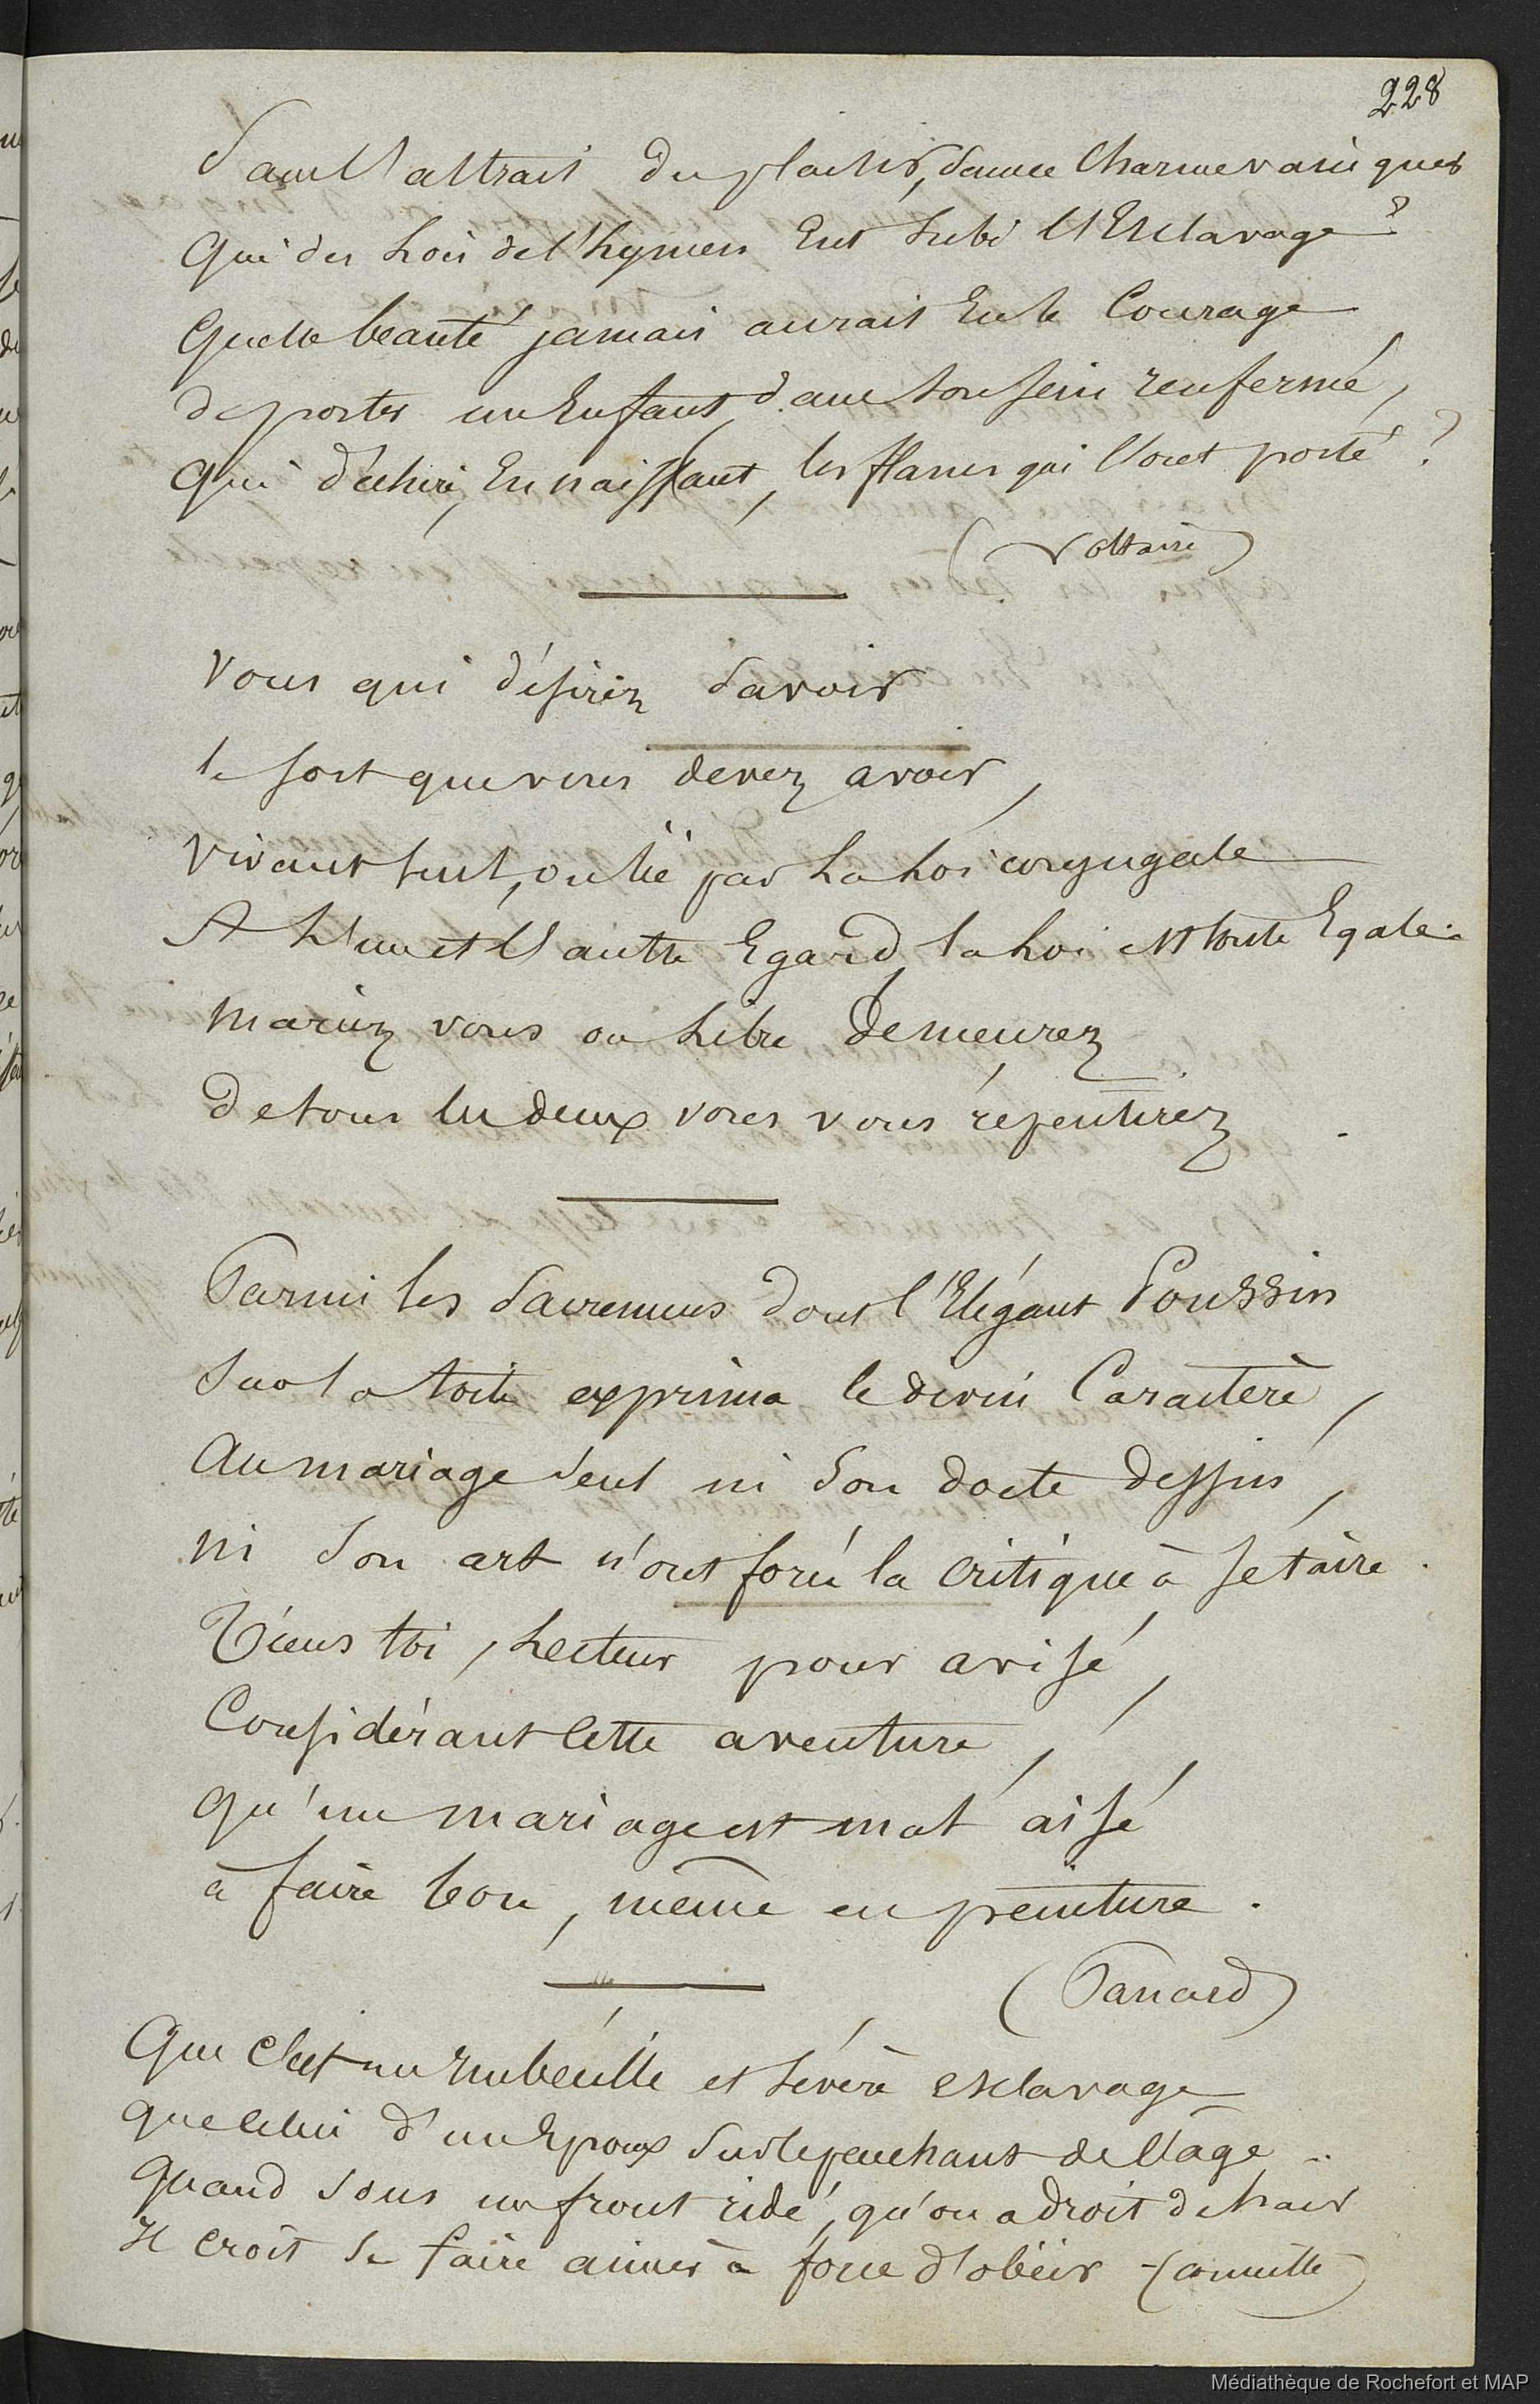 228
Sans l'attrait du plaisir, sans ce Charme vainqueur
Qui des Lois de l'hymen Eut Subi l'Esclavage?
Quelle beauté jamais aurait Eu le Courage
de porter un Enfant, dans son sein renfermé,
Qui déchire, En naissant, les flancs qui l'ont porté ?
(Voltaire)
Vous qui désirez Savoir
le sort que vous devez avoir,
Vivant seul, ou lié par La Loi conjugale
A L'un et l'autre Egard, la Loi est toute Egale.
Mariez vous ou Libre demeurez
De tous les deux vous vous répentirez.
Parmi les Sacremens dont l'Elégant Poussin
Sur la toile exprima le divin Caractère,
Au mariage Seul ni Son docte dessin,
ni Son art n'ont forcé la critique à se taire.
Tiens toi, Lecteur pour avisé,
Considérant Cette aventure,
qu'un mariage est mal aisé
à faire bon, même en peinture.
(Panard)
Que C'est un Imbécille et Sévère esclavage
que celui d'un Epoux Sur le penchant de l'âge..
Quand Sous un front ridé, qu'on a droit de haïr
Il croit Se faire aimer à force d'obéir (Corneille)
Médiathèque de Rochefort et MAP